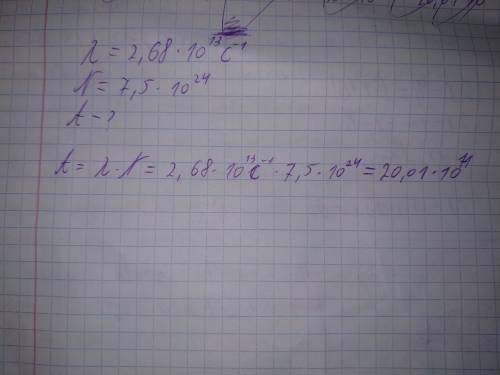 λ = 2,68 · 10¹³ c⁻¹
N = 7,5 · 10²⁴
A - ?
A = λ · N = 2,68 · 10¹³ c⁻¹ · 7,5 · 10²⁴ = 20,01 · 10¹¹